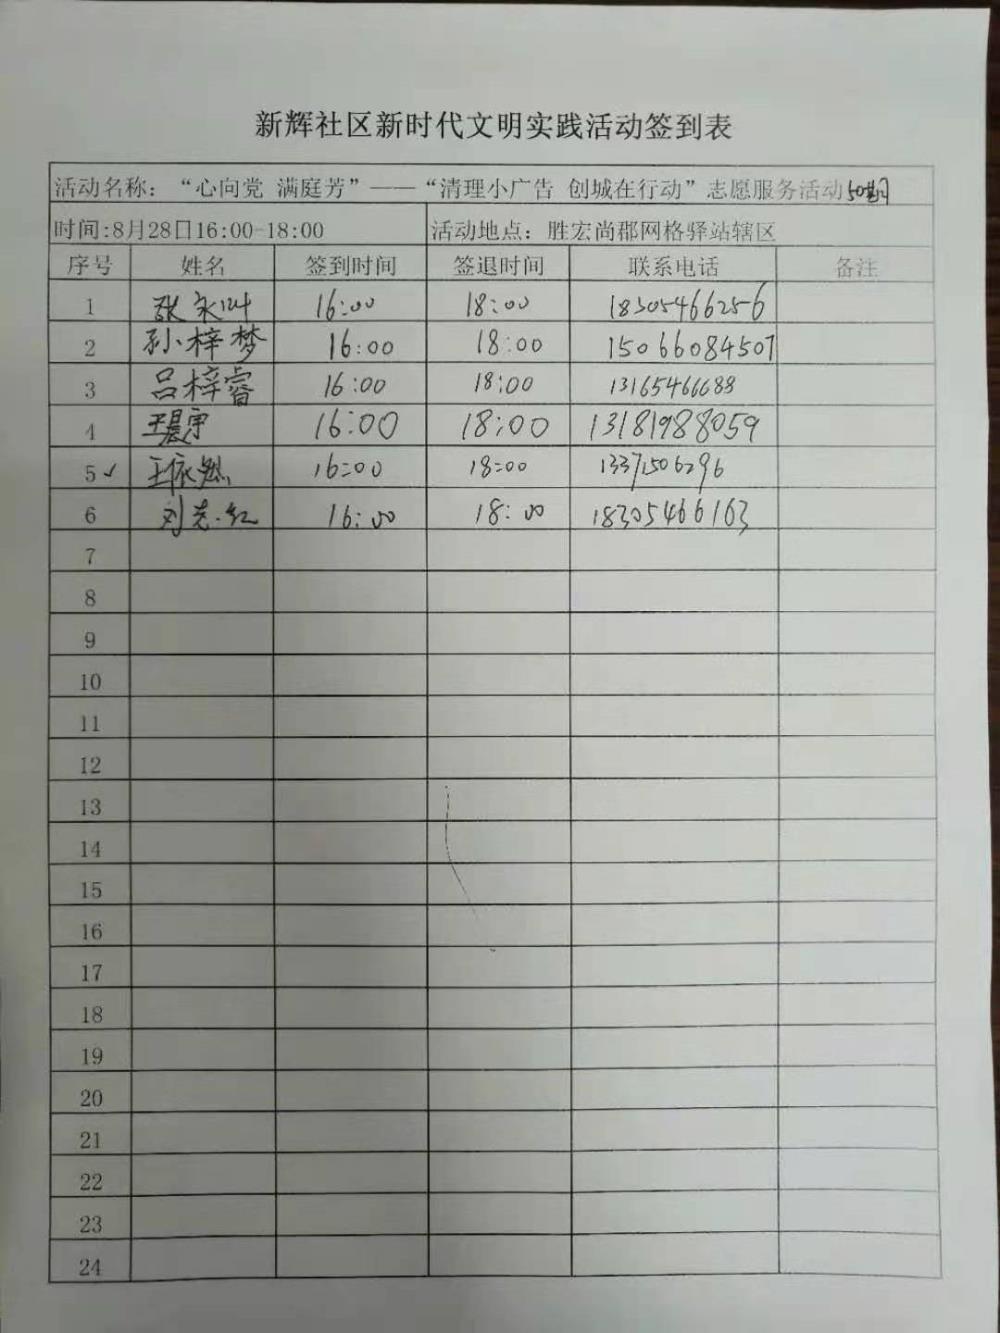 新辉社区新时代文明实践活动签到表
活动名称：“心向党 满庭芳”——“清理小广告 创城在行动”志愿服务活动50期
时间:8月28日16:00-18:00 活动地点：胜宏尚郡网格驿站辖区
序号 姓名 签到时间 签退时间 联系电话 备注
1 张永叶 16:00 18:00 18305466256
2 孙梓梦 16:00 18:00 15066084507
3 吕梓睿 16:00 18:00 13165466688
4 王晨宇 16:00 18:00 13181988059
5✓ 王依然 16:00 18:00 13371506296
6 刘志红 16:00 18:00 18305466163
7
8
9
10
11
12
13
14
15
16
17
18
19
20
21
22
23
24